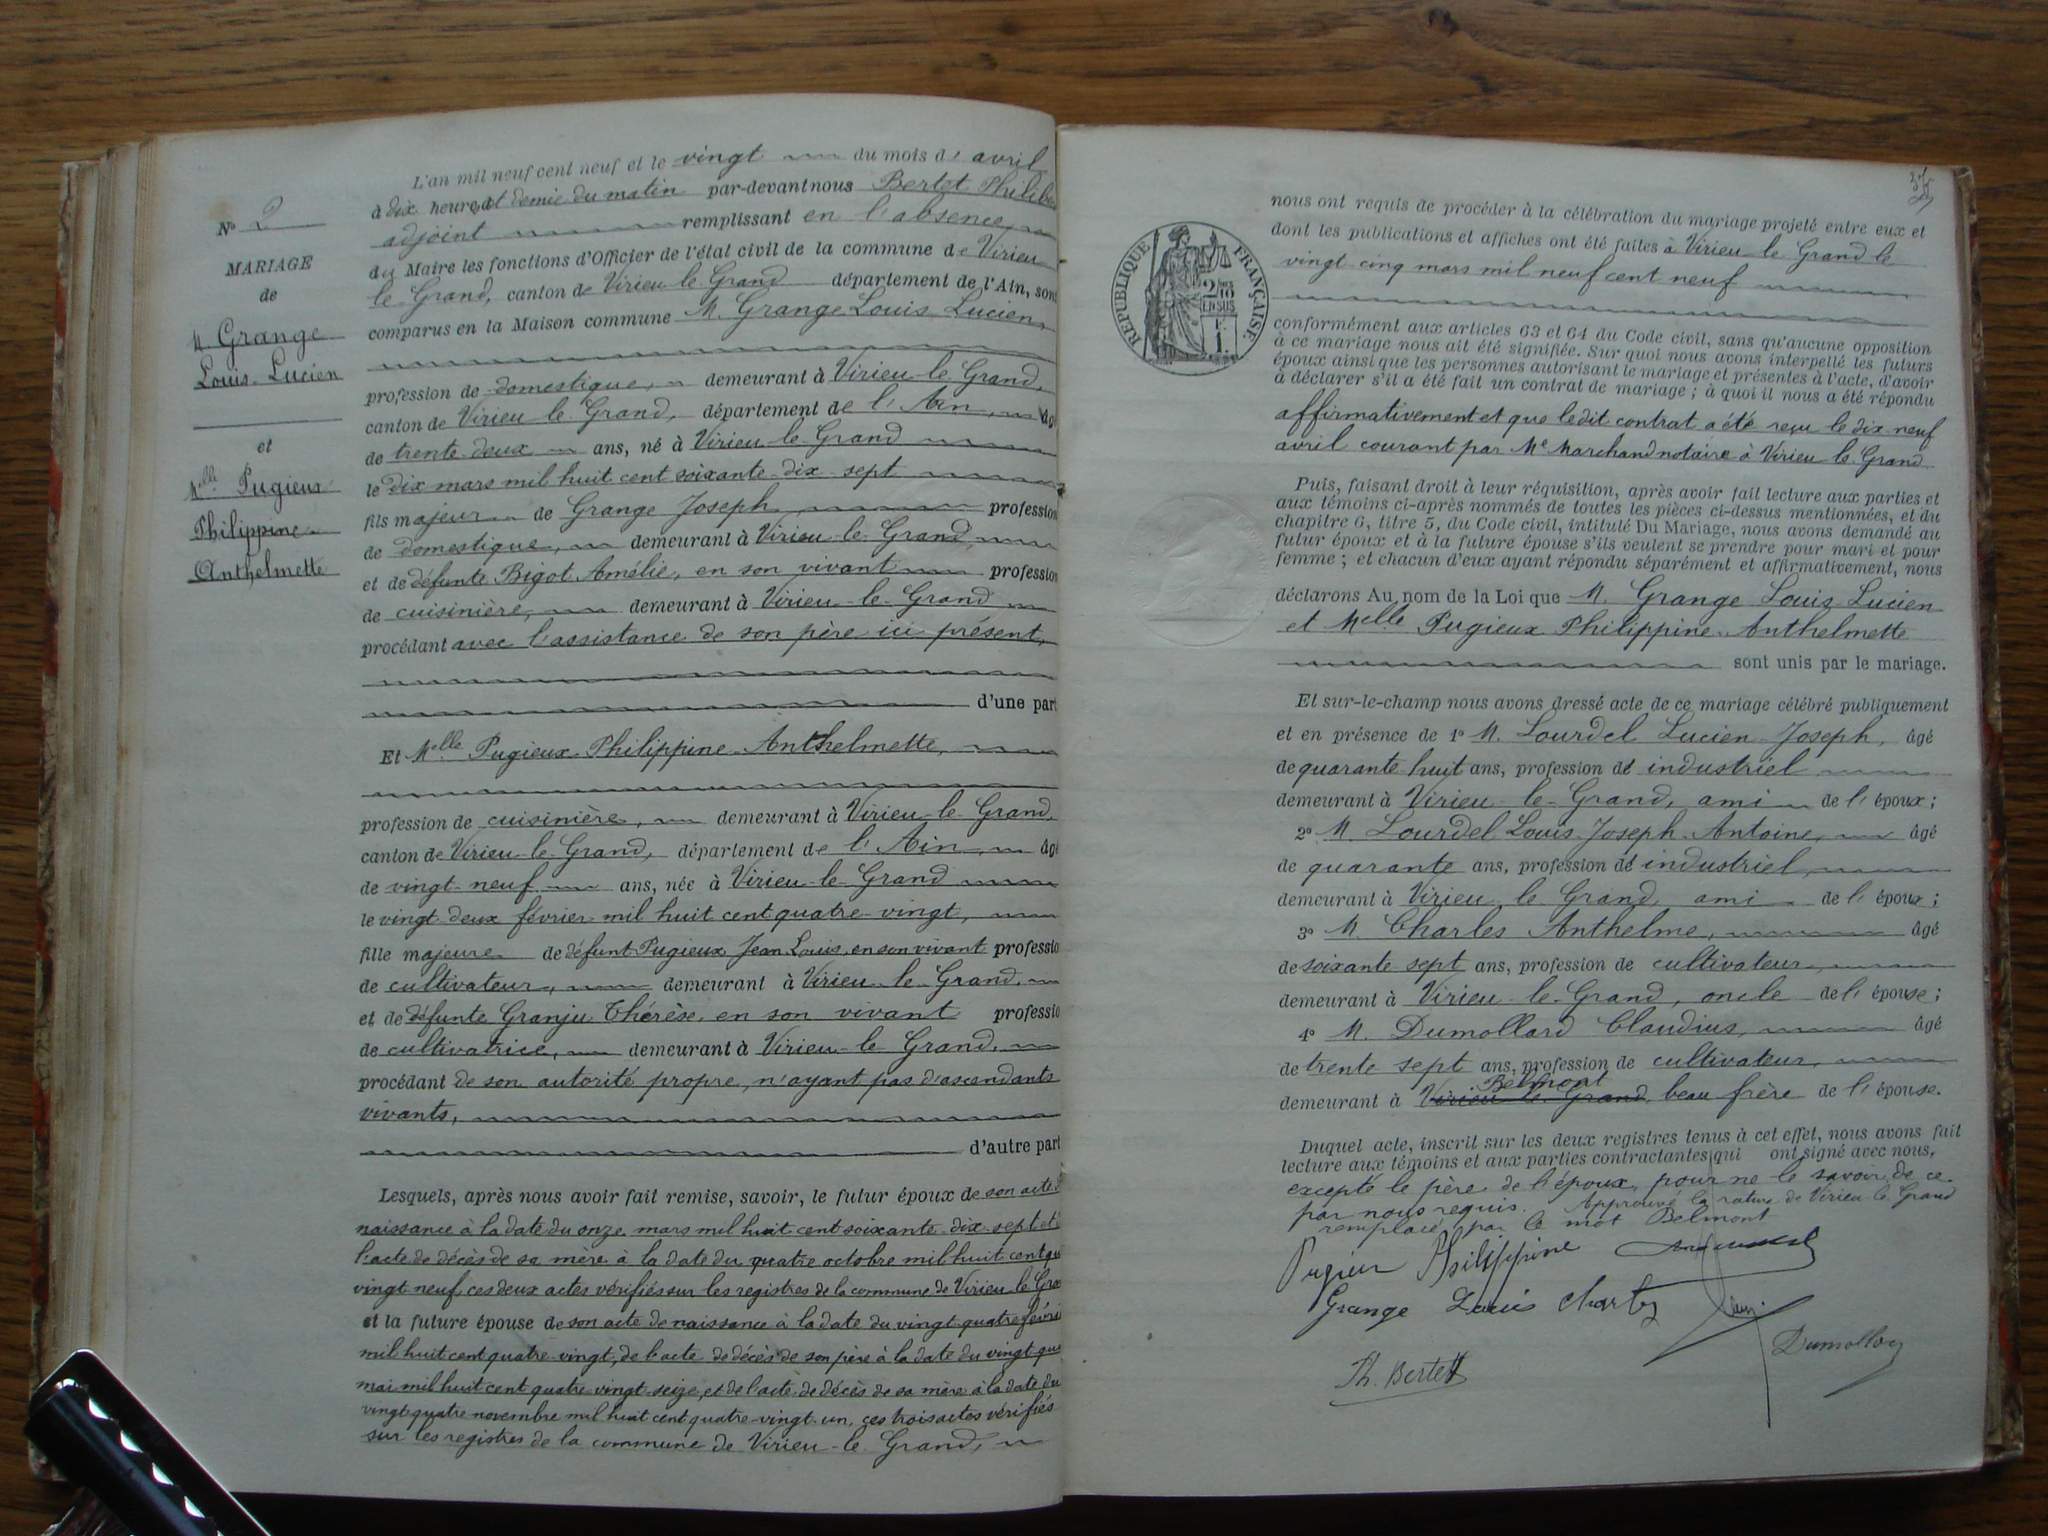 L'an mil neuf cent neuf et le vingt du mois d' avril
à dix heures et demie du matin par-devant nous Bertet Philibe
adjoint remplissant en l'absence
du Maire les fonctions d'Officier de l'état civil de la commune de Virieu
le Grand, canton de Virieu le Grand département de l'Ain, sont
comparus en la Maison commune M. Grange Louis Lucien,
profession de domestique, demeurant à Virieu-le-Grand,
canton de Virieu le Grand, département de l'Ain, âgé
de trente deux ans, né à Virieu-le-Grand
le dix mars mil huit cent soixante-dix-sept
fils majeur de Grange Joseph profession
de domestique, demeurant à Virieu-le-Grand,
et de défunte Bigot Amélie, en son vivant profession
de cuisinière, demeurant à Virieu-le-Grand
procédant avec l'assistance de son père ici présent,
d'une part
Et Melle Pugieux Philippine Anthelmette,
profession de cuisinière, demeurant à Virieu-le-Grand,
canton de Virieu-le-Grand, département de l'Ain, âgé
de vingt-neuf ans, née à Virieu-le-Grand
le vingt deux février mil huit cent quatre-vingt,
fille majeure de défunt Pugieux Jean Louis, en son vivant professio
de cultivateur, demeurant à Virieu-le-Grand,
et de défunte Granju Thérèse, en son vivant professio
de cultivatrice, demeurant à Virieu-le-Grand,
procédant de son autorité propre, n'ayant pas d'ascendants
vivants,
d'autre part
Lesquels, après nous avoir fait remise, savoir, le futur époux de son acte d
naissance à la date du onze mars mil huit cent soixante-dix-sept et
l'acte de décès de sa mère à la date du quatre octobre mil huit cent qu
vingt neuf, ces deux actes vérifiés sur les registres de la commune de Virieu le Gra
et la future épouse de son acte de naissance à la date du vingt-quatre févri
mil huit cent quatre-vingt, de l'acte de décès de son père à la date du vingt qua
mai mil huit cent quatre vingt seize, et de l'acte de décès de sa mère à la date du
vingt-quatre novembre mil huit cent quatre-vingt-un, ces trois actes vérifiés
sur les registres de la commune de Virieu-le-Grand,
No 2
MARIAGE
de
M Grange
Louis Lucien
et
Melle Pugieux
Philippine
Anthelmette
nous ont requis de procéder à la célébration du mariage projeté entre eux et
dont les publications et affiches ont été faites à Virieu-le-Grand le
vingt cinq mars mil neuf cent neuf
RÉPUBLIQUE FRANÇAISE
2/10
EN SUS
1f.
conformément aux articles 63 et 64 du Code civil, sans qu'aucune opposition
à ce mariage nous ait été signifiée. Sur quoi nous avons interpellé les futurs
époux ainsi que les personnes autorisant le mariage et présentes à l'acte, d'avoir
à déclarer s'il a été fait un contrat de mariage ; à quoi il nous a été répondu
affirmativement et que ledit contrat a été reçu le dix neuf
avril courant par Me Marchand notaire à Virieu le Grand
Puis, faisant droit à leur réquisition, après avoir fait lecture aux parties et
aux témoins ci-après nommés de toutes les pièces ci-dessus mentionnées, et du
chapitre 6, titre 5, du Code civil, intitulé Du Mariage, nous avons demandé au
futur époux et à la future épouse s'ils veulent se prendre pour mari et pour
femme ; et chacun d'eux ayant répondu séparément et affirmativement, nous
déclarons Au nom de la Loi que M. Grange Louis Lucien
et Melle Pugieux Philippine Anthelmette
sont unis par le mariage.
Et sur-le-champ nous avons dressé acte de ce mariage célébré publiquement
et en présence de 1o M. Lourdel Lucien Joseph, âgé
de quarante huit ans, profession d'industriel
demeurant à Virieu-le-Grand, ami de l'époux ;
2o M. Lourdel Louis Joseph Antoine, âgé
de quarante ans, profession d'industriel,
demeurant à Virieu le Grand, ami de l'époux ;
3o M. Charles Anthelme, âgé
de soixante sept ans, profession de cultivateur,
demeurant à Virieu-le-Grand, oncle de l'épouse ;
4o M. Dumollard Claudius, âgé
de trente sept ans, profession de cultivateur,
Belmont
demeurant à Virieu le Grand, beau frère de l'épouse.
Duquel acte, inscrit sur les deux registres tenus à cet effet, nous avons fait
lecture aux témoins et aux parties contractantes qui ont signé avec nous,
excepté le père de l'époux, pour ne le savoir, de ce
par nous requis. Approuvé la rature de Virieu le Grand
remplacé par le mot Belmont
Pugieux Philippine
Grange Louis Charles
Dumollard
Ph. Bertet